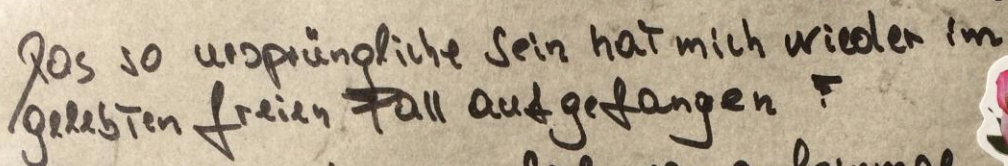 Das so ursprüngliche Sein hat mich wieder im
gelebten freien Fall aufgefangen ?